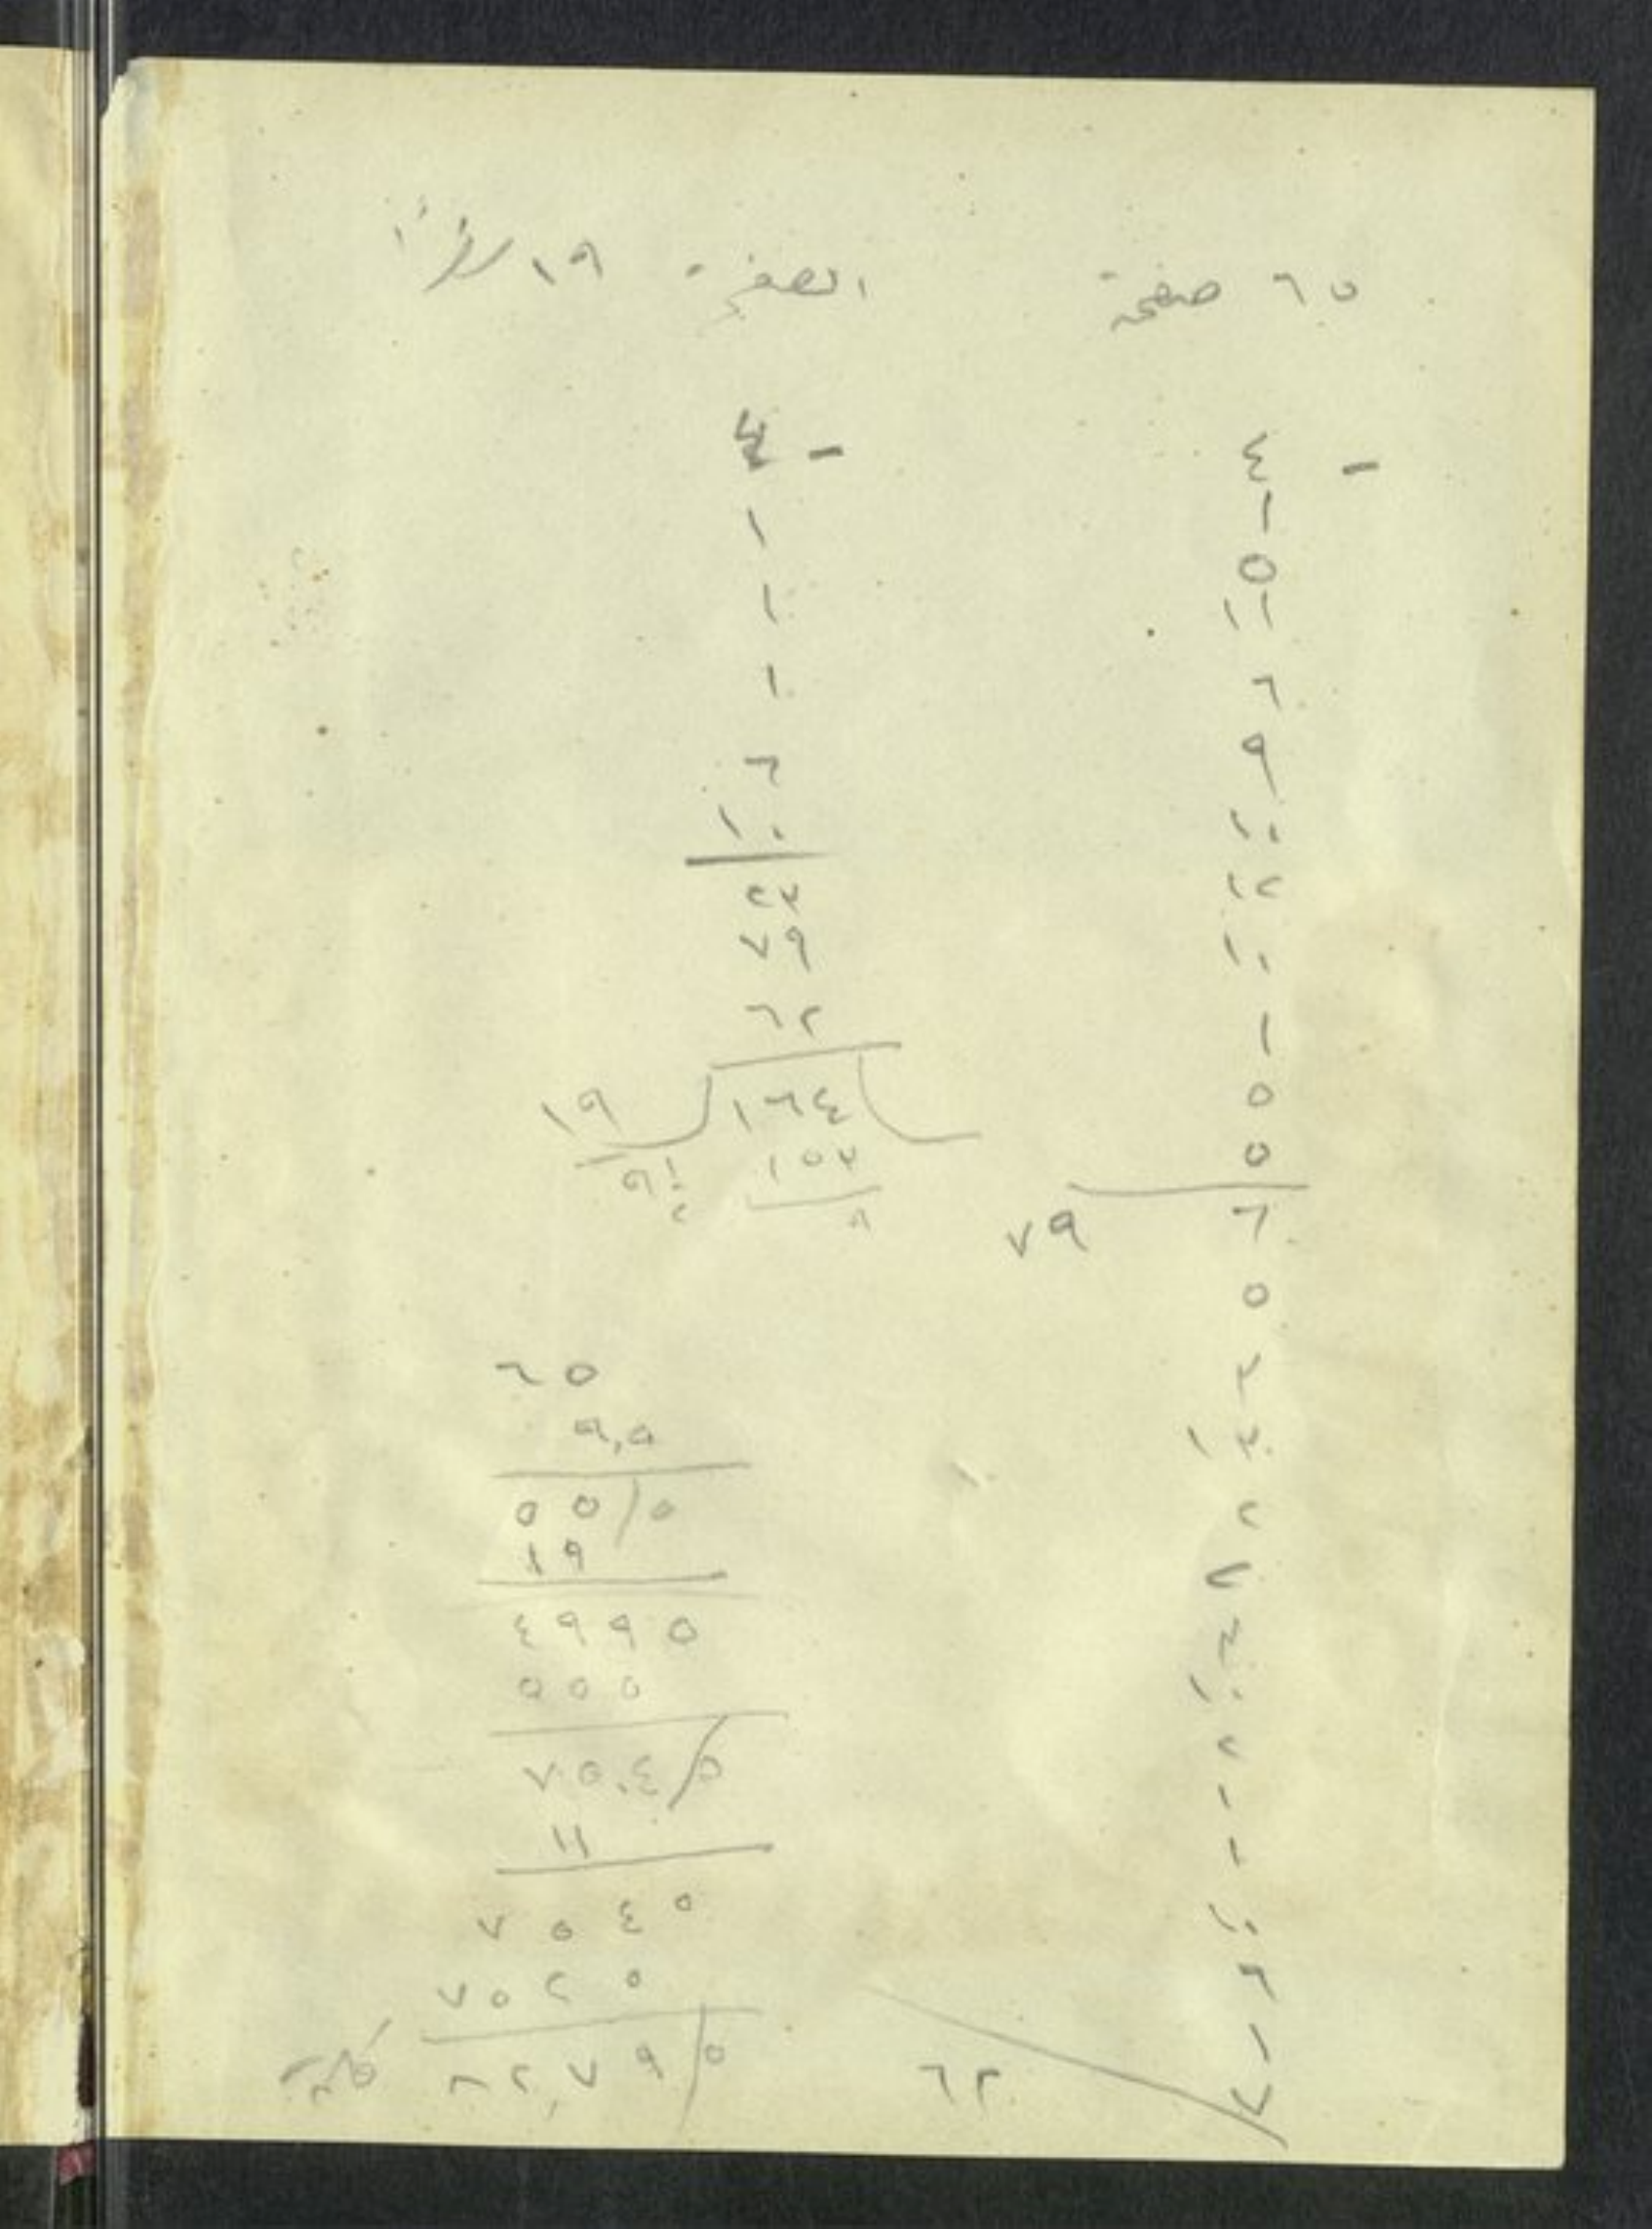 ٦٥ صفحة
الصفحة ١٩ سطراً
- ٤
١
٥
١١
٦
٩
١٠
١٢
١٠
١
٥
٥
٧٩
٦
٥
٣
١٣
٢
٧
١٠
٢
١
١
١٠
٦
١
٧
٦٢
- ٤
١
١
١
٦
١٠
٢٣
٧٩
٦٢
١٦٤
١٩
١٥٣
٦٥
٩,٥
٥٥/٥
١٩
٤٩٩٥
٥٥٥
٧٥٤/٥
١١
٧٥٤٥
٧٥٤٥
٦٢,٧٩/٥